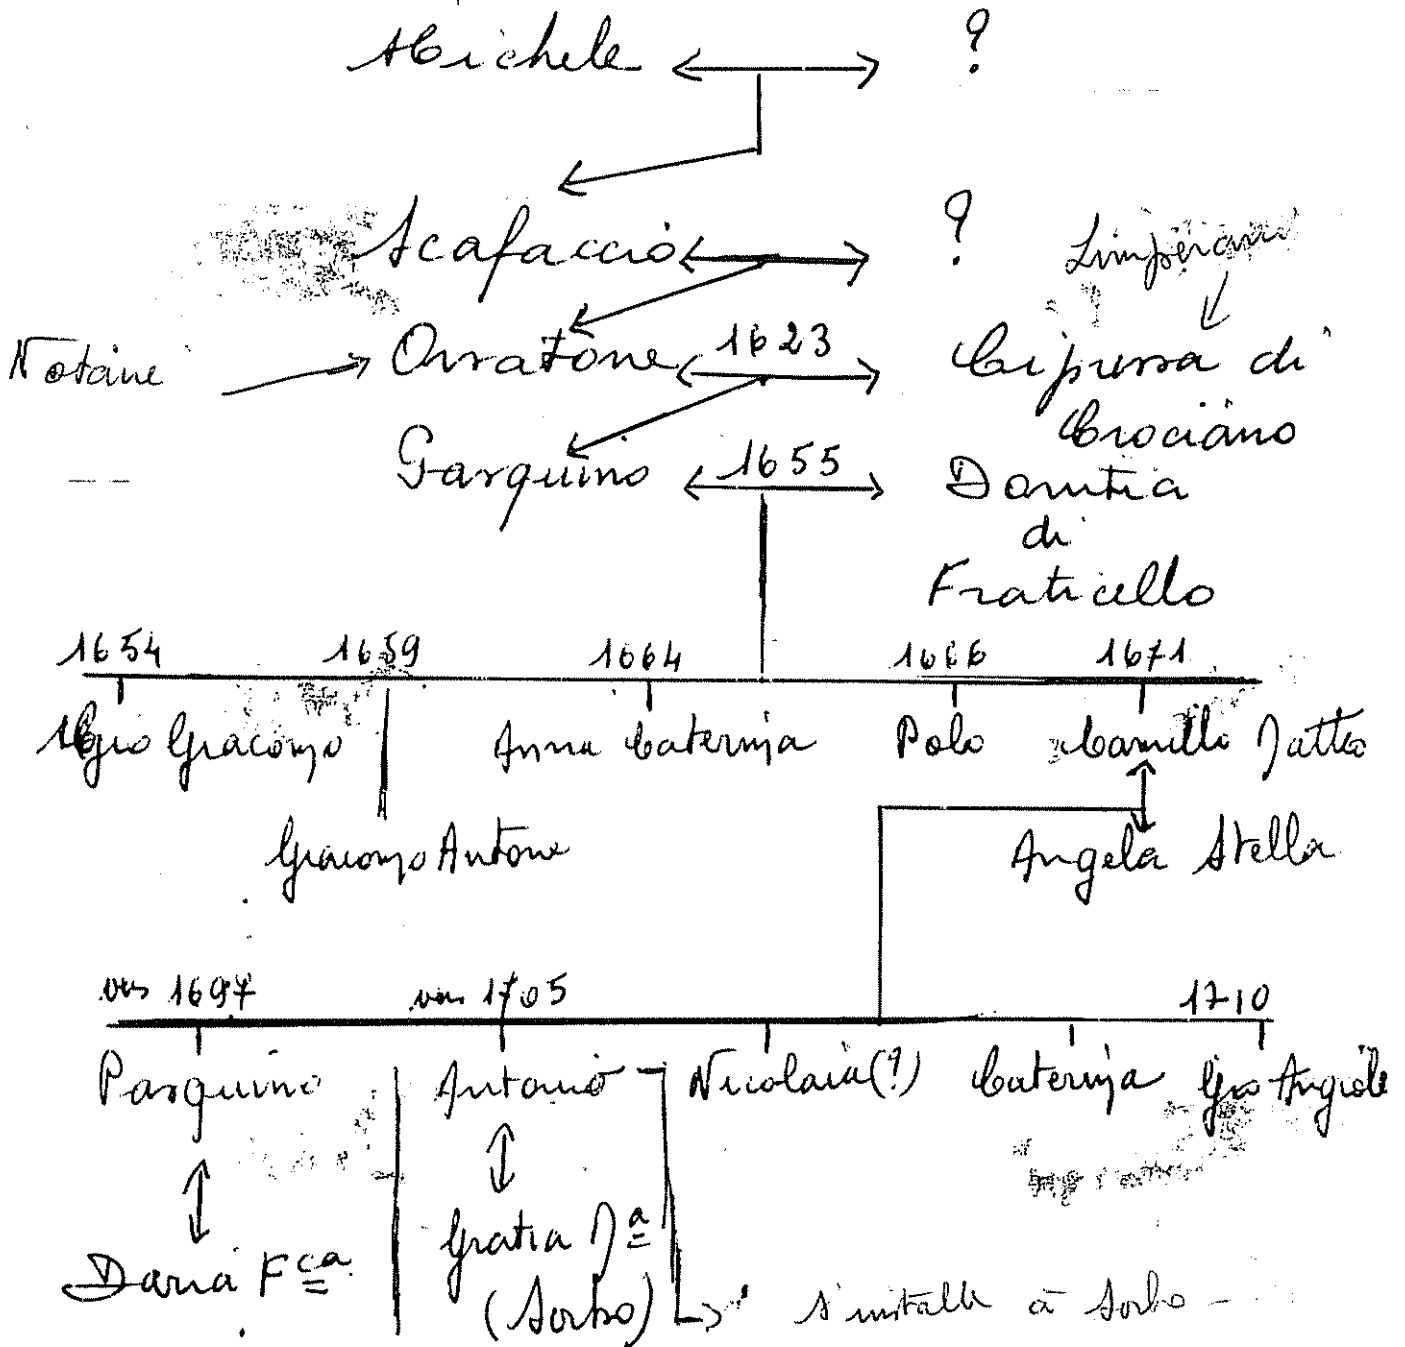 Michele ?
Scafaccio ? Limperani
Notaire Orsatone 1623 Cipressa di
Crociano
Pasquino 1655 Domitia
di
Fraticello
1654 1659 1664 1666 1671
Giacomo Anna Caterina Polo Camillo Matteo
Giacomo Antone Angela Stella
vers 1697 vers 1705 1710
Pasquino Antonio Nicolaia(?) Caterina Gio Angiole
Daria Fca Gratia Ma
(Sorbo) s'installe à Sorbo -